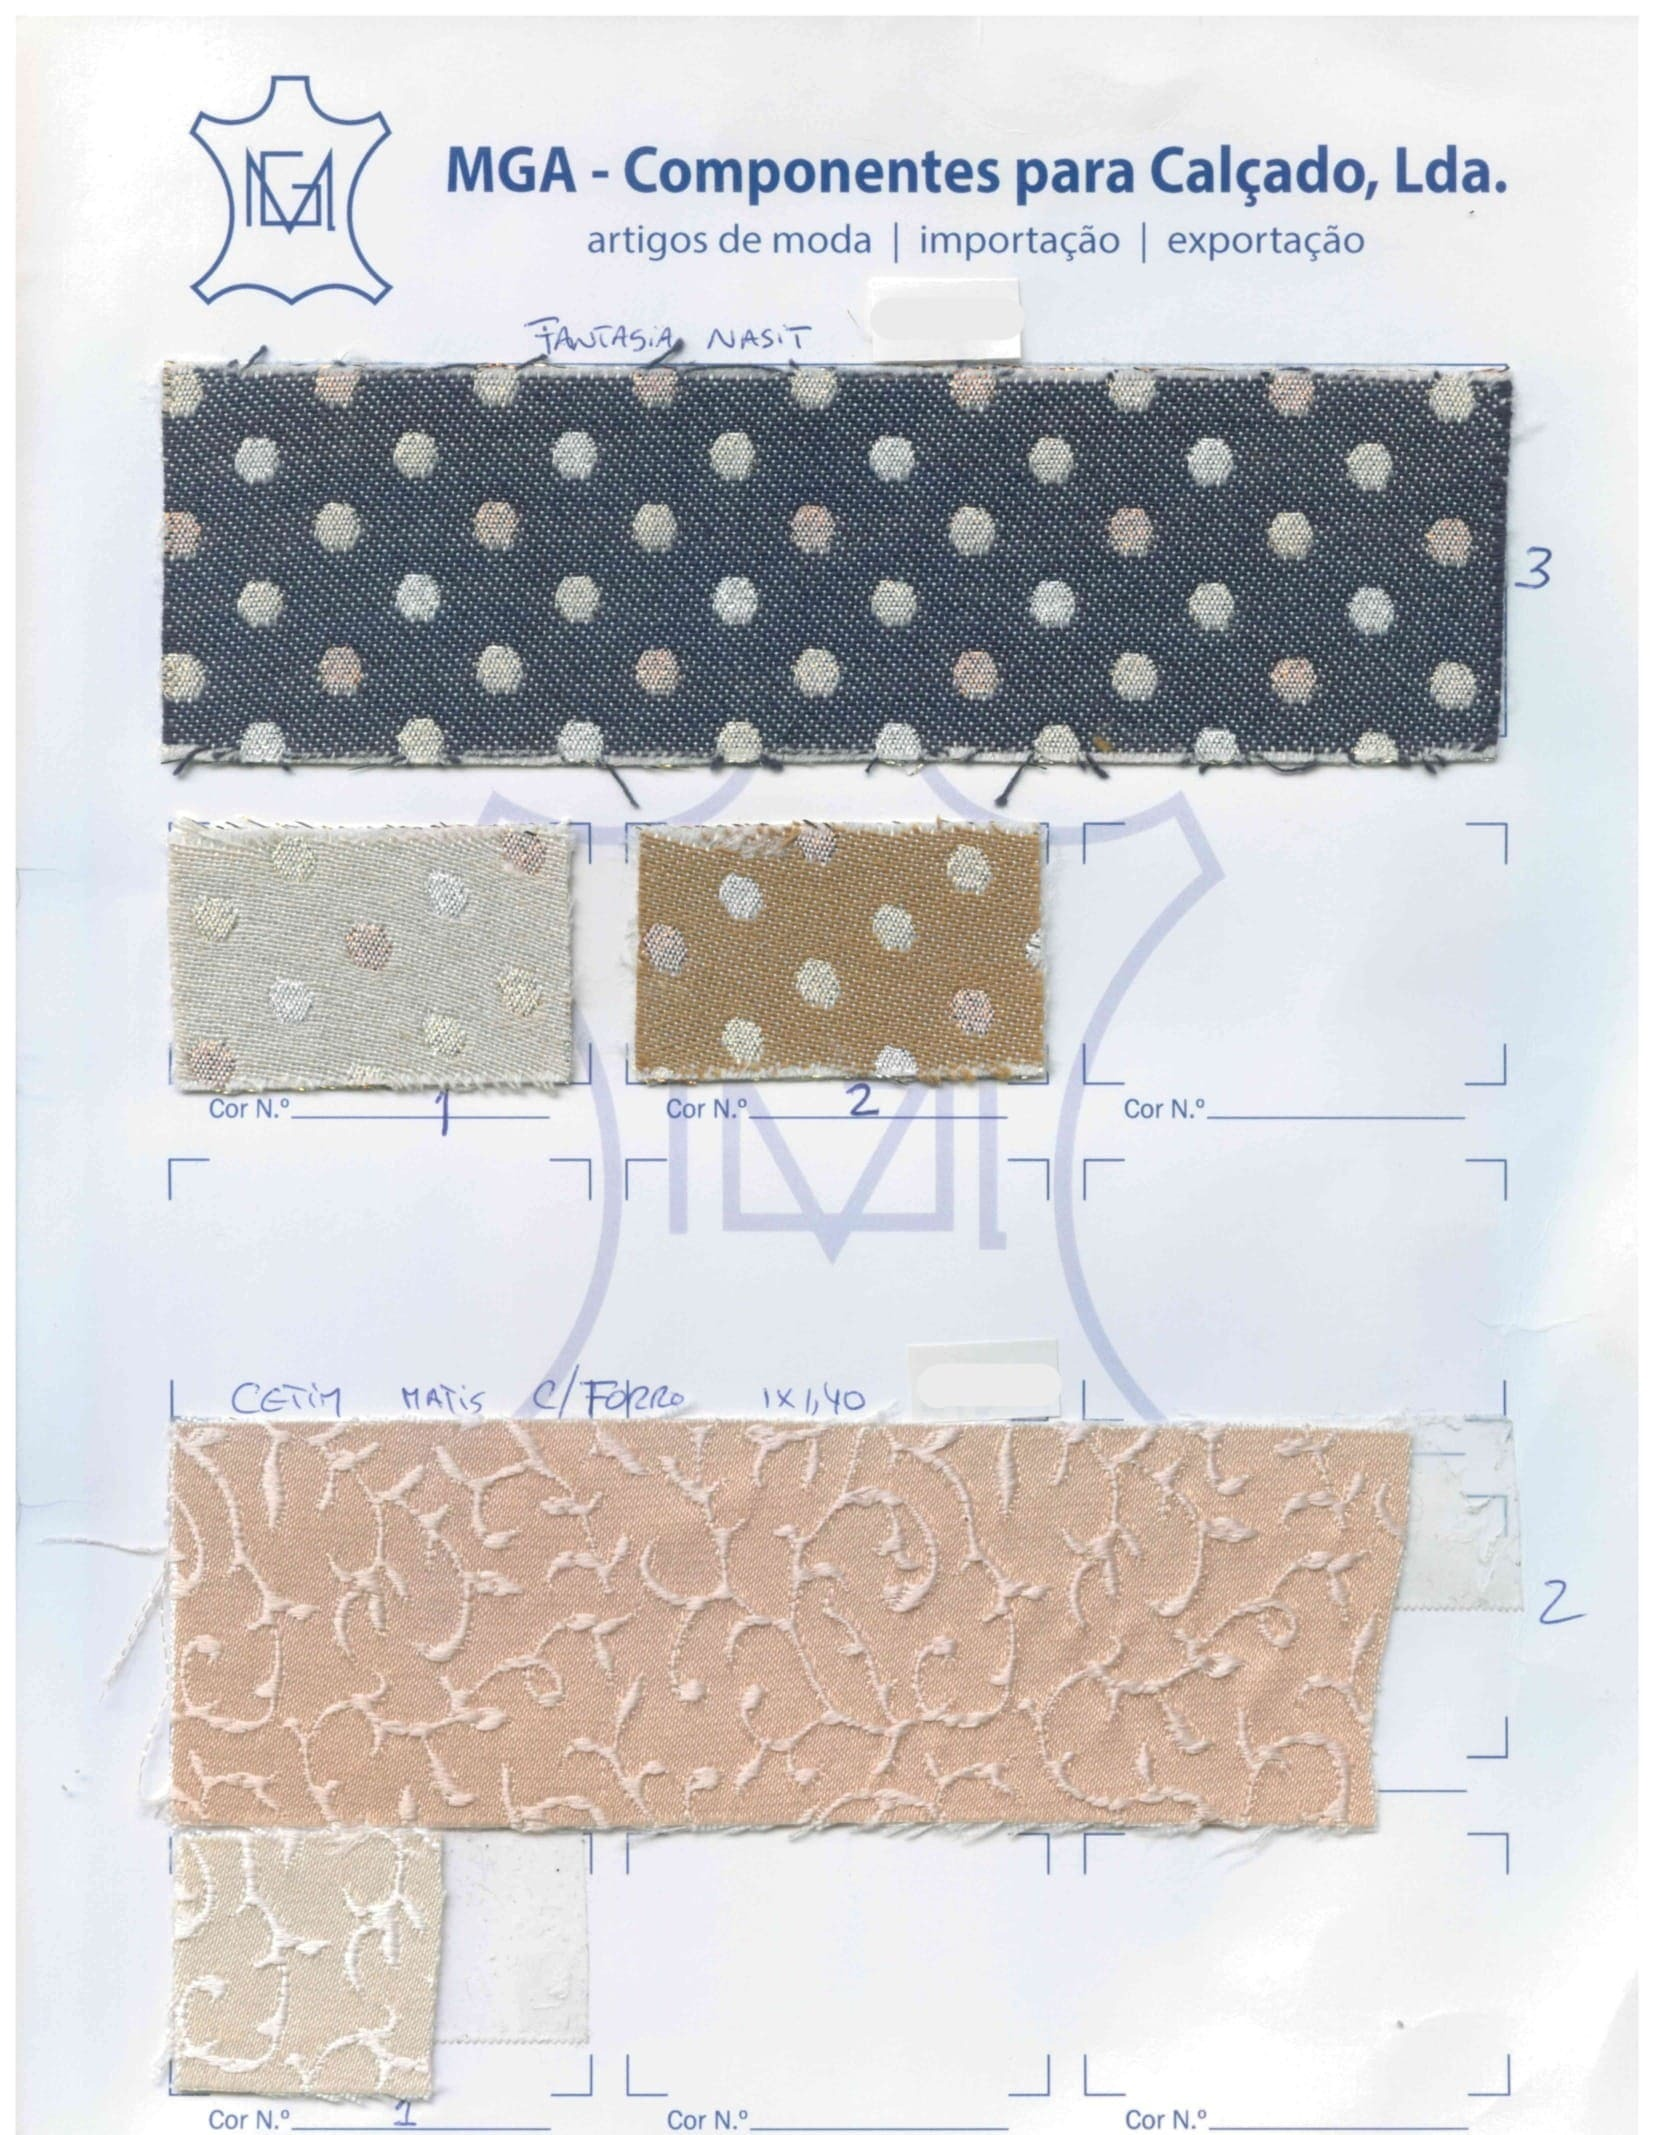 MGA
MGA - Componentes para Calçado, Lda.
artigos de moda | importação | exportação
FANTASIA NASIT
3
Cor N.º 1
Cor N.º 2
Cor N.º
CETIM MATIS C/FORRO 1X1,40
2
Cor N.º 1
Cor N.º
Cor N.º